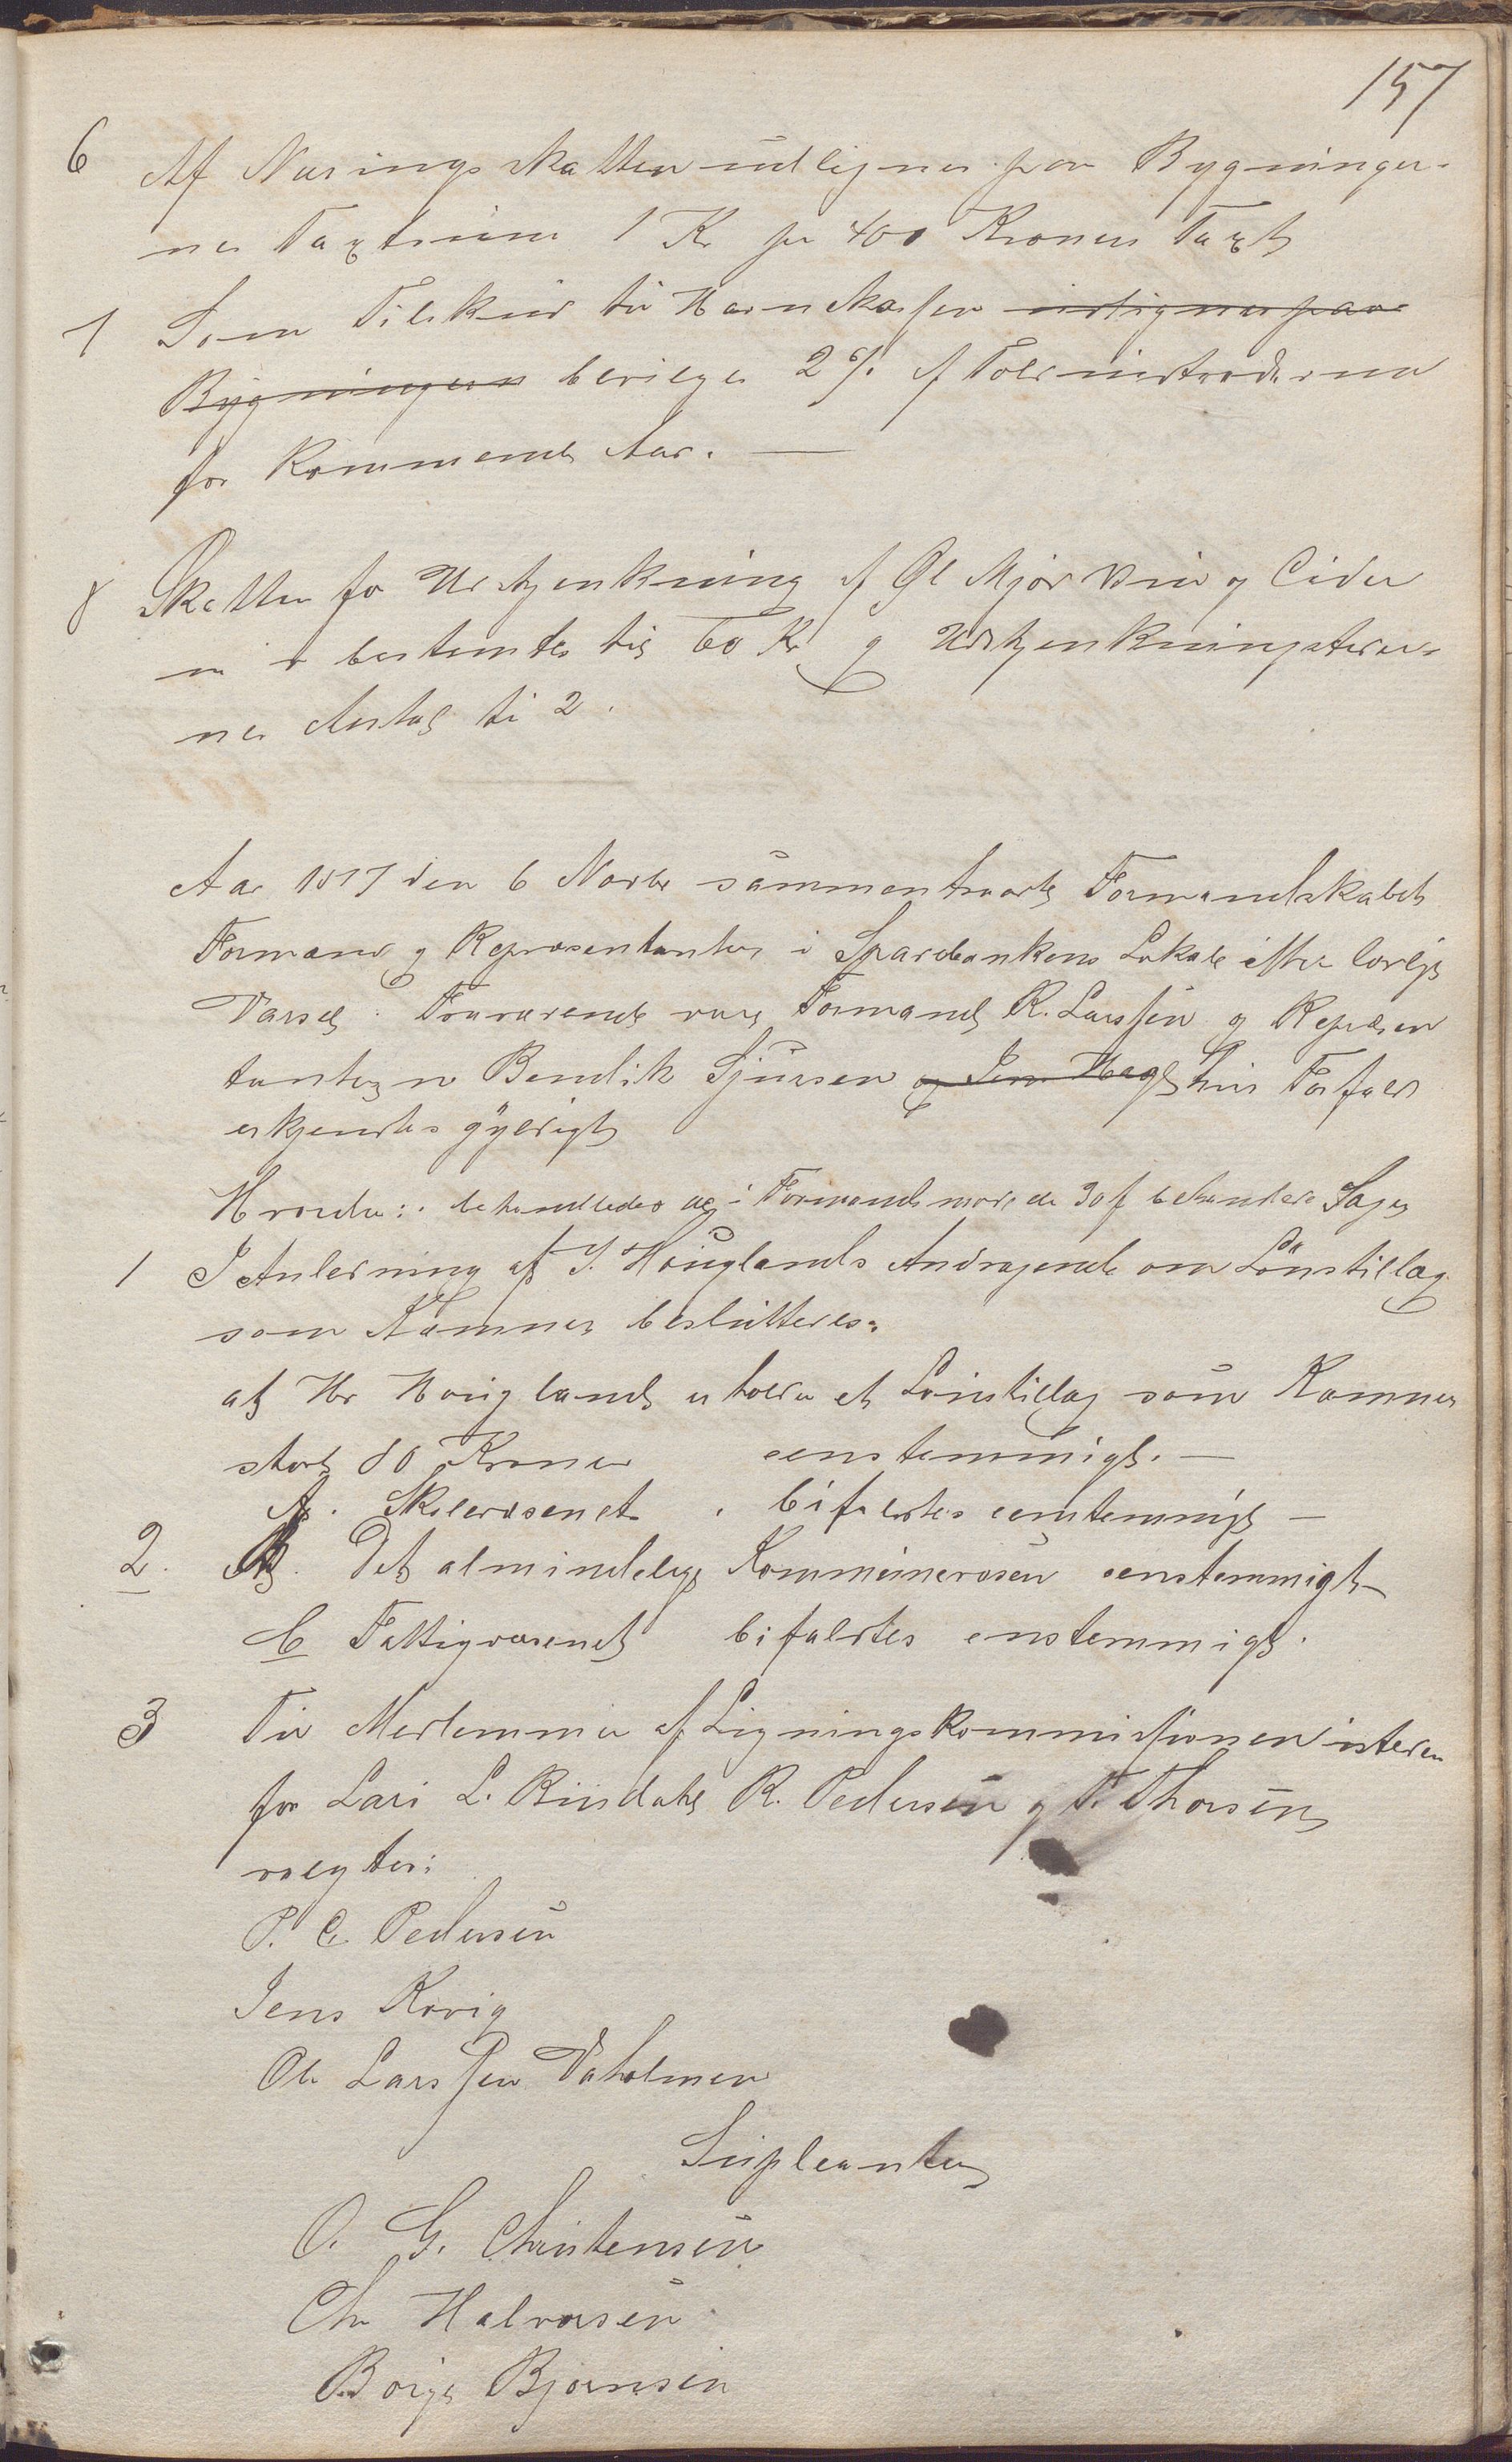 157
6 Af Næringsskatten udlignes paa Bygninger-
nes Taxtsum 1 Kr per 400 Kroners Taxt
7 Som Tilskud til Havnekassen udlignes paa
Bygningern bevilges 2 % af Toldindtægterne
for kommende Aar. —
8 Skatten for Udskjenkning af Øl Mjød Vin og Cider
bestemtes til 60 Kr og Udskjenkningssteder-
nes Antal til 2.
Aar 1877 den 6 Novbr sammentraadte Formandskabets
Formand og Repræsentanter i Sparebankens Lokale efter lovligt
Varsel. Fraværende var Formand R. Larssen og Repræsen
tanterne Bendik Sjursen og Jens Hage hvis Forfald
erkjendtes gyldigt
Hvorda: behandledes de i Formandsmøde de 30 f behandlede Sager
1 I Anledning af J. Houglands Andragende om Lønstillæg
som Kæmner besluttedes:
at Hr Hougland erholder et Lønstillæg som Kæmner
stort 80 Kroner eenstemmigt. —
A. Skolevæsenet. bifaldtes eenstemmigt —
2. B. Det almindelige Kommunevæsen eenstemmigt —
C Fattigvæsenet bifaldtes enstemmigt.
3 Til Medlemmer af Ligningskommissionen isteden
for Lars L. Rusdahl R. Pedersen og T. Thorsen
valgtes:
P. C. Pedersen
Jens Kovig
Ole Larssen Vaholmen
Supleanter
O. G. Christensen
Chr Halvorsen
Børge Bjørnsen